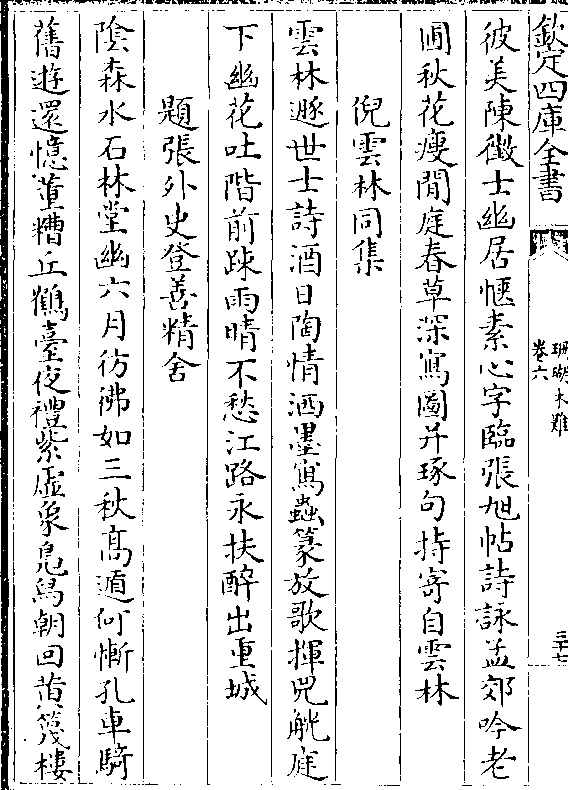 欽定四庫全書
珊瑚木難
卷六
三十七
彼美陳徵士幽居愜素心字臨張旭帖詩詠孟郊吟老
圃秋花瘦閒庭春草深寫圖并琢句持寄自雲林
倪雲林同集
雲林遯世士詩酒日陶情洒墨寫蟲篆放歌揮兕觥庭
下幽花吐階前踈雨晴不愁江路永扶醉出重城
題張外史登善精舍
陰森水石林堂幽六月彷彿如三秋髙遁何慚孔車騎
舊遊還憶董糟丘鶴臺夜禮紫虛象鳬舄朝回黄篾樓